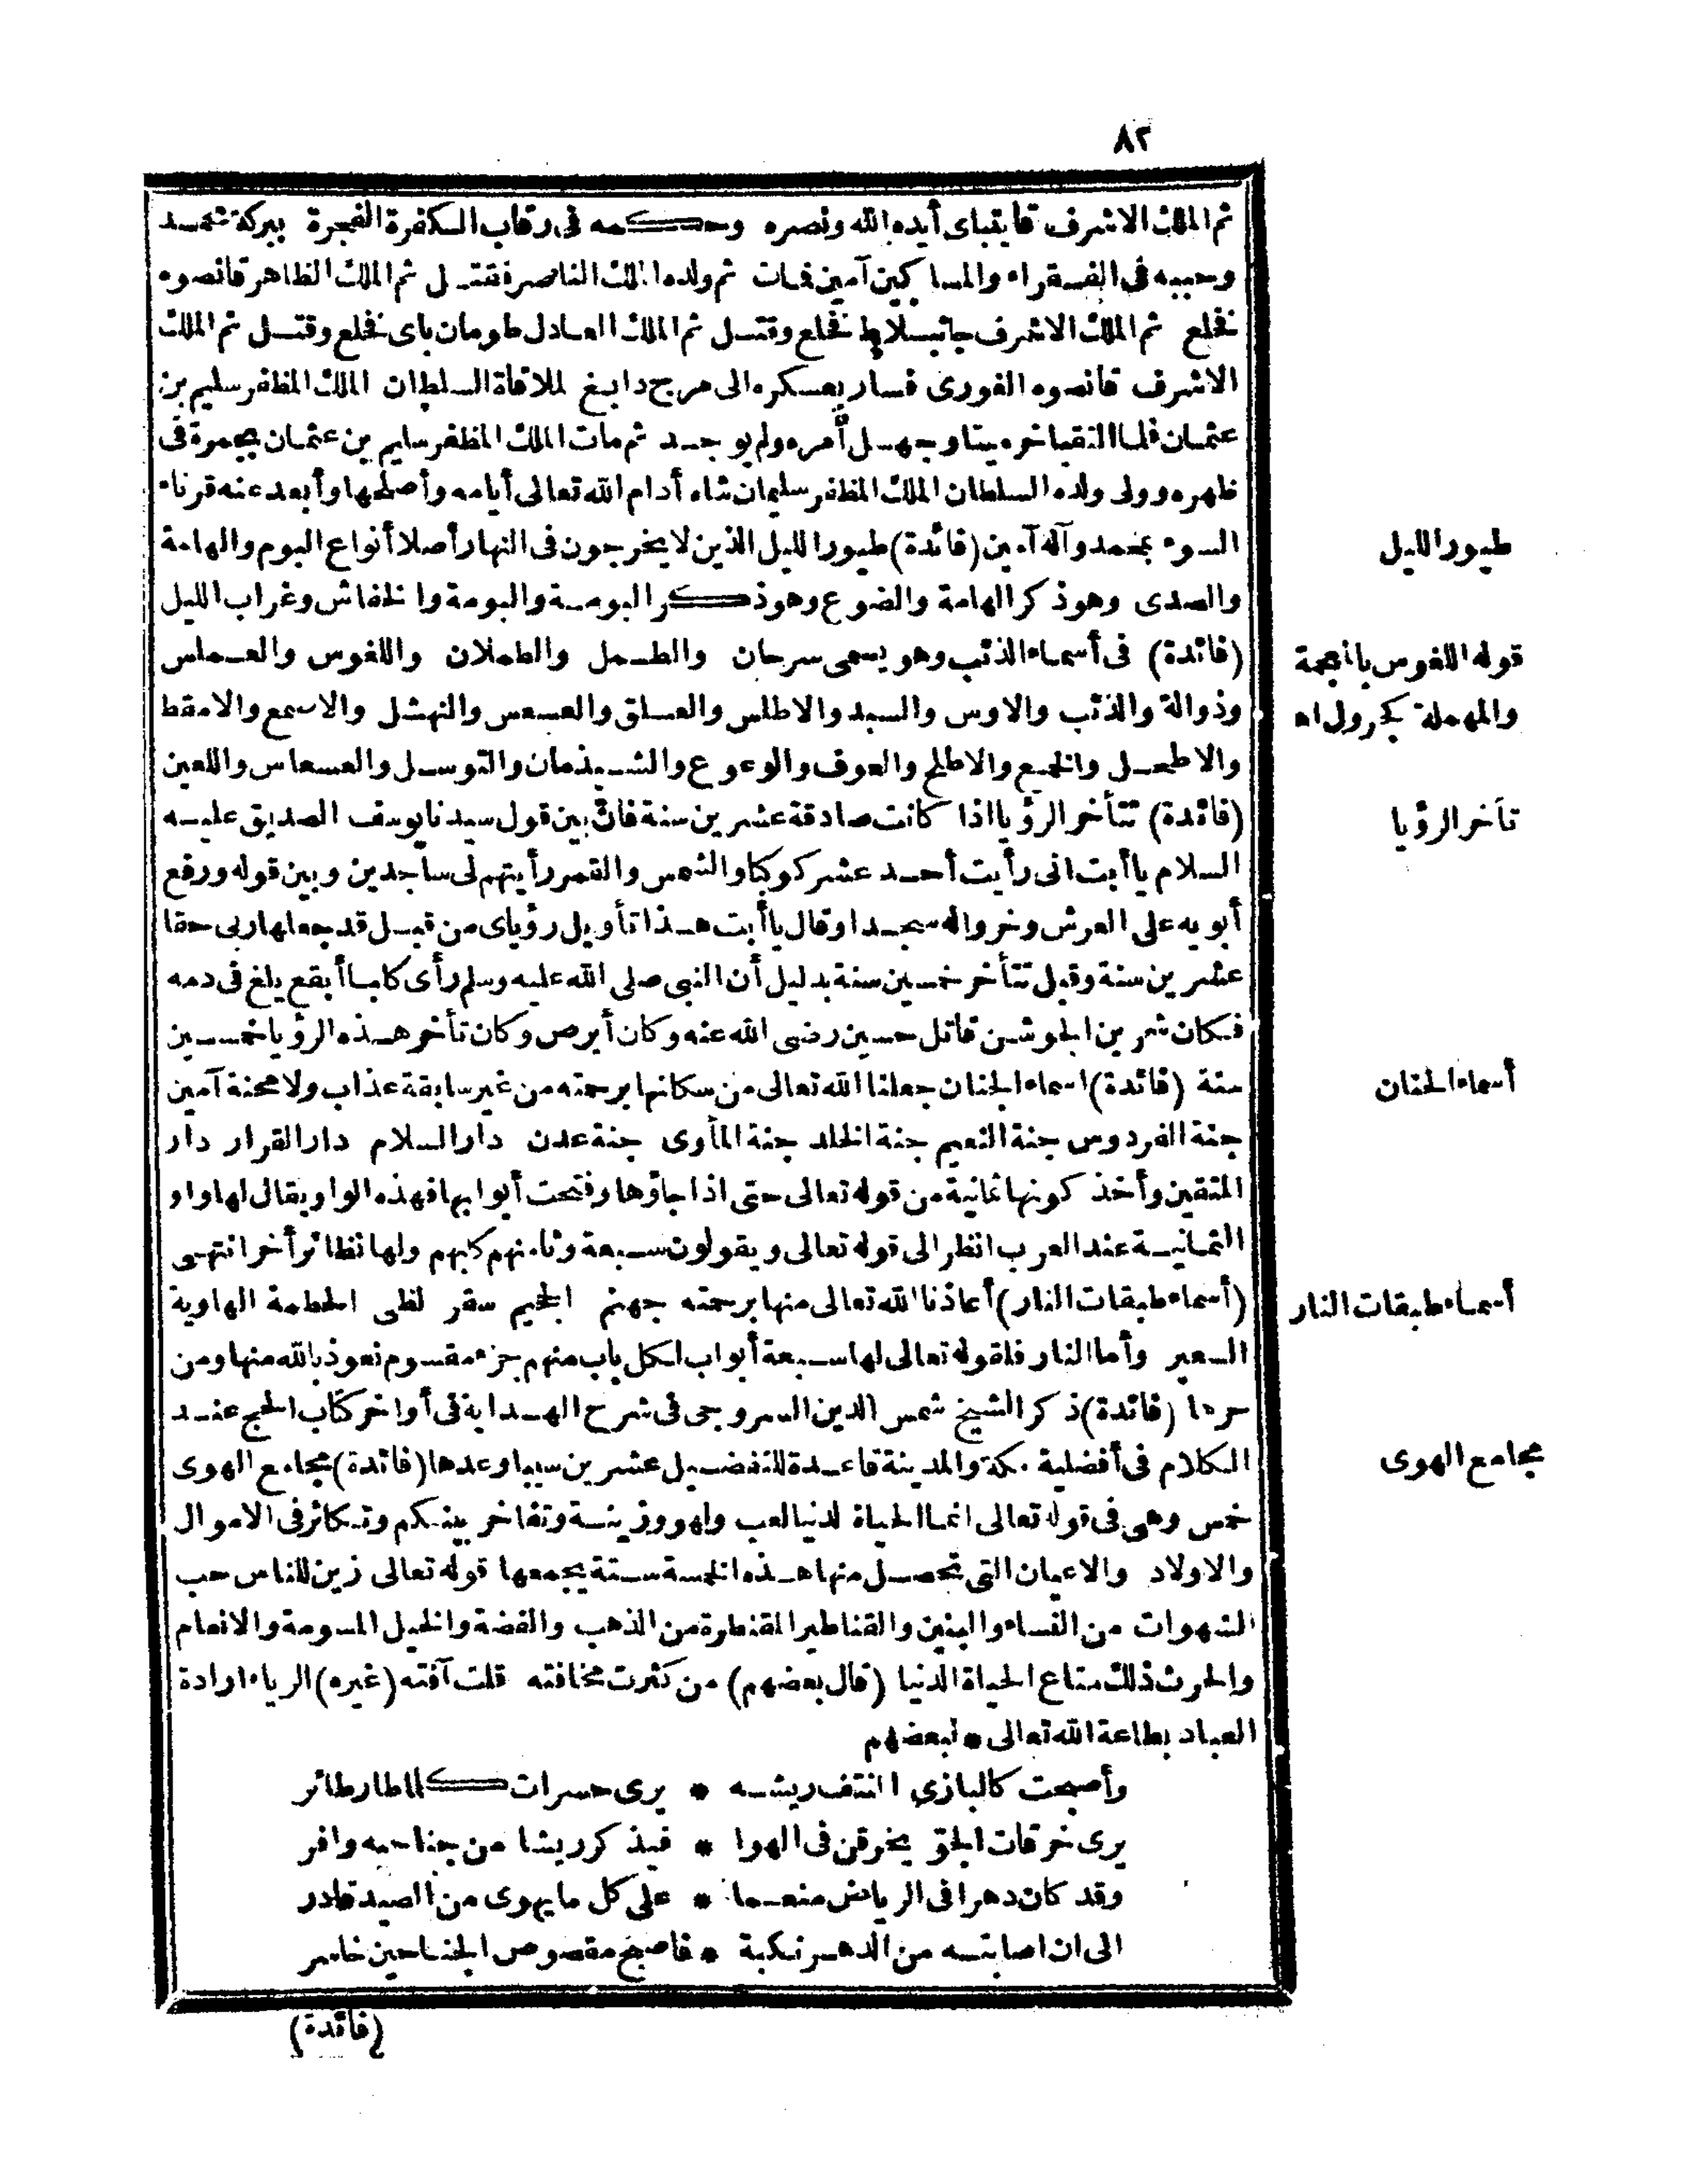 ٨٢
ثم الملك الاشرف قايتباى أيده الله ونصره وحكمه فى رقاب الكفرة الفجرة ببركة محمد
وحببه فى الفقراء والمساكين آمين فمات ثم ولده الملك الناصر فقتل ثم الملك الظاهر قانصوه
فخلع ثم الملك الاشرف جانبلاط فخلع وقتل ثم الملك العادل طومان باى فخلع وقتل ثم الملك
الاشرف قانصوه الغورى فسار بعسكره الى مرج دابغ لملاقاة السلطان الملك المظفر سليم بن
عثمان فلما التقيا خر ميتا وجهل أمره ولم يوجد ثم مات الملك المظفر سليم بن عثمان بجمرة فى
ظهره وولى ولده السلطان الملك المظفر سليمان شاه أدام الله تعالى أيامه وأصلحها وأبعد عنه قرناء
السوء بمحمد وآله آمين (فائدة) طيور الليل الذين لا يخرجون فى النهار أصلا أنواع البوم والهامة
والصدى وهو ذكر الهامة والضوع وهو ذكر البومة والبومة والخفاش وغراب الليل
(فائدة) فى أسماء الذئب وهو يسمى سرحان والطمل والطملان واللغوس والعملس
وذوالة والذئب والاوس والسيد والاطلس والعسلق والعسعس والنهشل والاسمع والامقط
والاطحل والخمع والاطلح والعوف والوعوع والشيذمان والتوسل والعسعاس واللعين
(فائدة) تتأخر الرؤيا اذا كانت صادقة عشرين سنة فان بين قول سيدنا يوسف الصديق عليه
السلام يا أبت انى رأيت أحد عشر كوكبا والشمس والقمر رأيتهم لى ساجدين وبين قوله ورفع
أبويه على العرش وخروا له سجدا وقال يا أبت هذا تأويل رؤياى من قبل قد جعلها ربى حقا
عشرين سنة وقيل تتأخر خمسين سنة بدليل أن النبى صلى الله عليه وسلم رأى كلبا أبقع يلغ فى دمه
فكان شمر بن الجوشن قاتل حسين رضى الله عنه وكان أبرص وكان تأخر هذه الرؤيا خمسين
سنة (فائدة) اسماء الجنان جعلنا الله تعالى من سكانها برحمته من غير سابقة عذاب ولا محنة آمين
جنة الفردوس جنة النعيم جنة الخلد جنة المأوى جنة عدن دار السلام دار القرار دار
المتقين وأخذ كونها ثمانية من قوله تعالى حتى اذا جاؤها وفتحت أبوابها فهذه الواو يقال لها واو
الثمانية عند العرب انظر الى قوله تعالى ويقولون سبعة وثامنهم كلبهم ولها نظائر أخر انتهى
(أسماء طبقات النار) أعاذنا الله تعالى منها برحمته جهنم الجحيم سقر لظى الحطمة الهاوية
السعير وأما النار فلقوله تعالى لها سبعة أبواب لكل باب منهم جزء مقسوم نعوذ بالله منها ومن
حرها (فائدة) ذكر الشيخ شمس الدين السروجى فى شرح الهداية فى أواخر كتاب الحج عند
الكلام فى أفضلية مكة والمدينة قاعدة للتفضيل عشرين سببا وعدها (فائدة) مجامع الهوى
خمس وهى فى قوله تعالى انما الحياة لدنيا لعب ولهو وزينة وتفاخر بينكم وتكاثر فى الاموال
والاولاد والاعيان التى تحصل منها هذه الخمسة ستة يجمعها قوله تعالى زين للناس حب
الشهوات من النساء والبنين والقناطير المقنطرة من الذهب والفضة والخيل المسومة والانعام
والحرث ذلك متاع الحياة الدنيا (قال بعضهم) من كثرت مخافته قلت آفته (غيره) الرياء ارادة
العباد بطاعة الله تعالى * لبعضهم
وأصبحت كالبازى المنتف ريشه * يرى حسرات كلما طار طائر
يرى خرقات الجو يخرقن فى الهوا * فيذكر ريشا من جناحيه وافر
وقد كان دهرا فى الرياض منعما * على كل ما يهوى من الصيد قادر
الى ان اصابته من الدهر نكبة * فاصبح مقصوص الجناحين خاسر
(فائدة)
طيور الليل
قوله اللغوس بالمعجمة
والمهملة كجرول اه
تأخر الرؤيا
أسماء الجنان
أسماء طبقات النار
مجامع الهوى